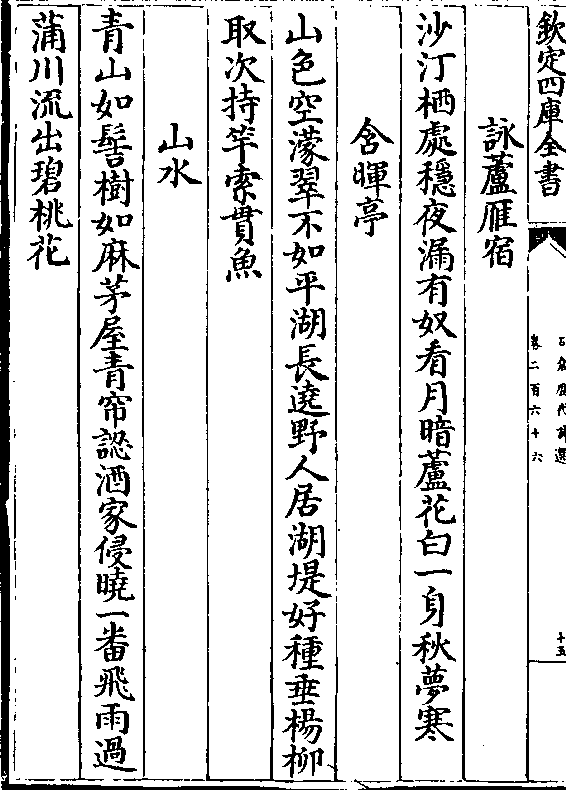 欽定四庫全書
石倉歷代詩選
卷二百六十六
十五
詠蘆雁宿
沙汀栖處穩夜漏有奴看月暗蘆花白一身秋夢寒
含暉亭
山色空濛翠不如平湖長遶野人居湖堤好種垂楊柳
取次持竿索貫魚
山水
青山如髻樹如麻茅屋青帘認酒家侵曉一番飛雨過
蒲川流出碧桃花